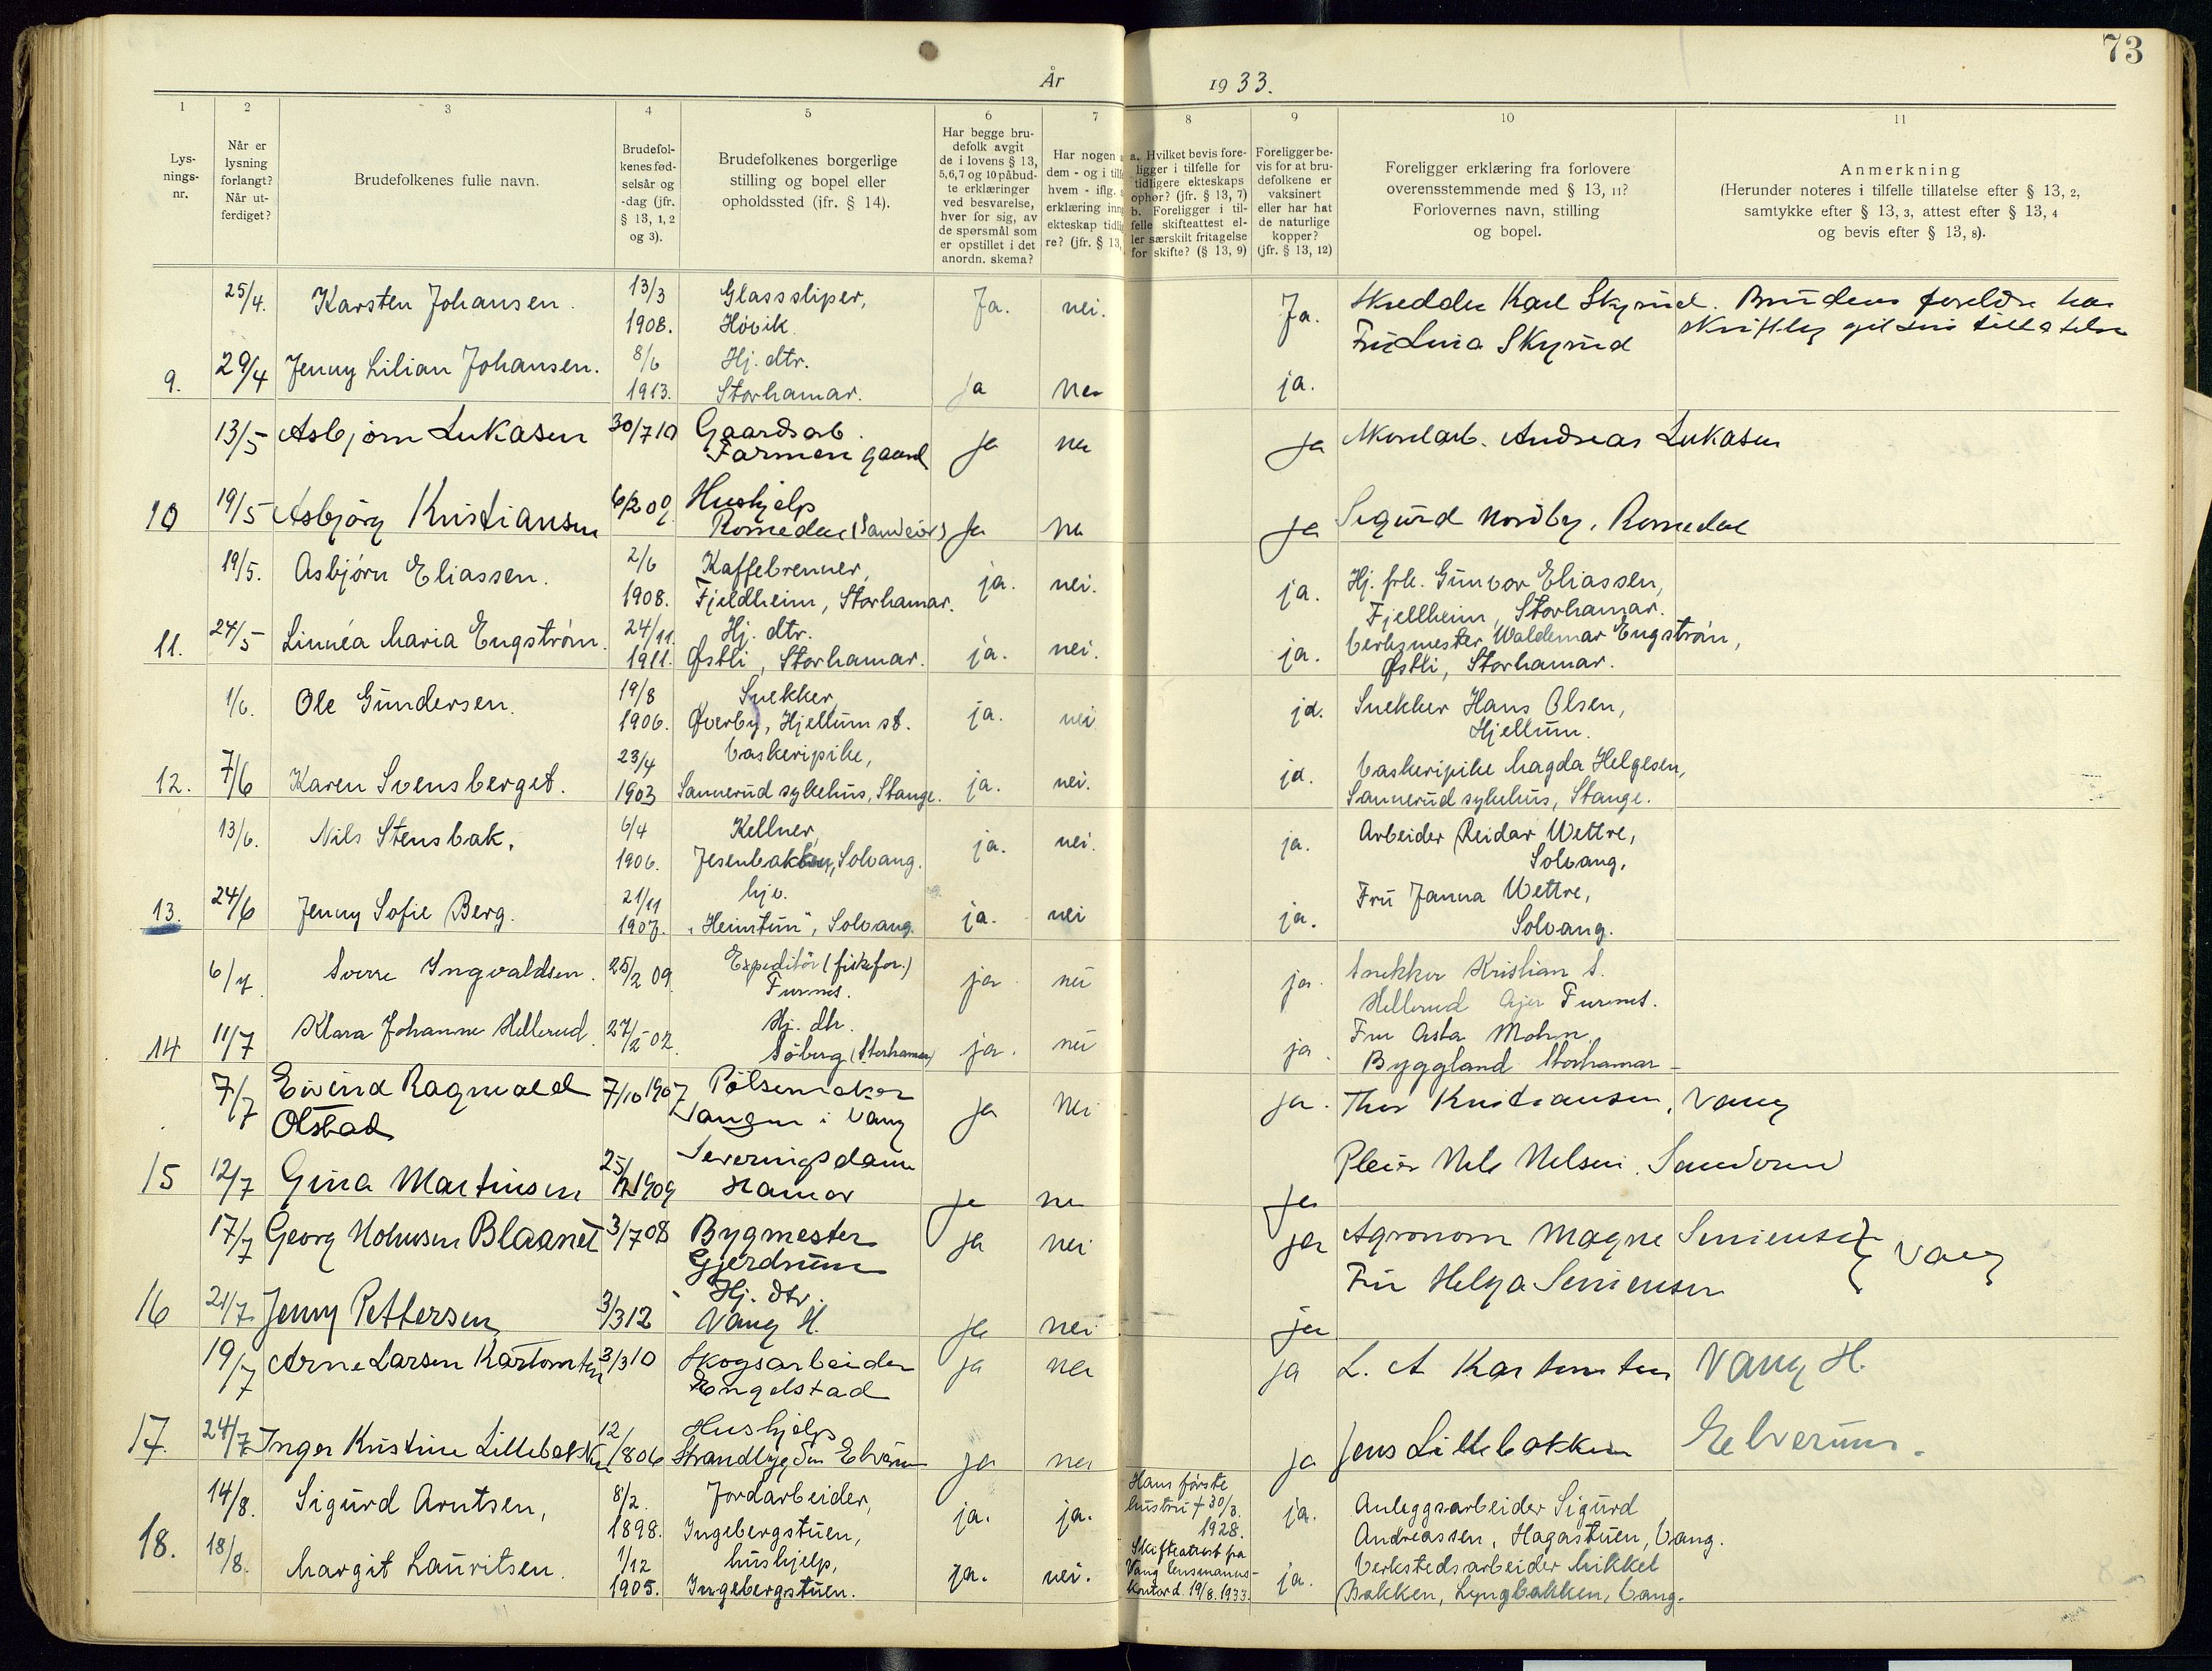 73
År 1933.
1 2 3 4 5 6 7 8 9 10 11
Lysningsnr.
Når er lysning forlangt? Når utferdiget?
Brudefolkenes fulle navn.
Brudefolkenes fødselsår og -dag (jfr. § 13, 1, 2 og 3).
Brudefolkenes borgerlige stilling og bopel eller opholdssted (jfr. § 14).
Har begge brudefolk avgit de i lovens § 13, 5, 6, 7 og 10 påbudte erklæringer ved besvarelse, hver for sig, av de spørsmål som er opstillet i det anordn. skema?
Har nogen
dem - og i tilf
hvem - iflg.
erklæring inn
ekteskap tidlig
re? (jfr. § 13,
a. Hvilket bevis foreligger i tilfelle for tidligere ekteskaps ophør? (jfr. § 13, 7)
b. Foreligger i tilfelle skifteattest eller særskilt fritagelse for skifte? (§ 13, 9)
Foreligger bevis for at brudefolkene er vaksinert eller har hat de naturlige kopper? (jfr. § 13, 12)
Foreligger erklæring fra forlovere overensstemmende med § 13, 11? Forlovernes navn, stilling og bopel.
Anmerkning
(Herunder noteres i tilfelle tillatelse efter § 13, 2, samtykke efter § 13, 3, attest efter § 13, 4 og bevis efter § 13, 8).
25/4. Karsten Johansen. 13/3 1908. Glasssliper, Høvik. Ja. nei. Ja. Skredder Karl Skyrud. Brudens foreldre har skriftlig gitt sin tillatelse
9. 29/4 Jenny Lilian Johansen. 8/6 1913. Hj. dtr. Storhamar. Ja nei ja. Fru Lina Skyrud
13/5 Asbjørn Lukasen 30/7 10 Gaardsarb. Farmen gaard Ja nei Ja Andreas Lukasen
10 19/5 Asbjørg Kristiansen 6/2 09 Hushjelp Romedal Ja nei Ja Sigurd Nordby, Romedal
19/5. Asbjørn Eliassen. 2/6 1908. Kaffebrenner, Fjeldheim, Storhamar. ja. nei. ja. Hj. frk. Gunvor Eliassen, Fjellheim, Storhamar.
11. 24/5 Linnéa Maria Engstrøm. 24/11. 1911. Hj. dtr. Østli, Storhamar. ja. nei. ja. Verksmester Waldemar Engstrøm, Østli, Storhamar.
1/6. Ole Gundersen. 19/8 1906. Snekker, Øverby, Hjellum st. ja. nei ja. Snekker Hans Olsen, Hjellum.
12. 7/6 Karen Svensberget. 23/4 1903 Vaskeripike, Sannerud sykehus, Stange. ja. nei. ja. Vaskeripike Magda Helgesen, Sannerud sykehus, Stange.
13/6. Nils Stensbak. 6/4 1906. Kellner, Jesenbakken, Solvang. ja. nei. ja. Arbeider Reidar Wettre, Solvang.
13. 24/6 Jenny Sofie Berg. 21/11 1907. hjv. "Heimtun", Solvang. ja. nei ja. Fru Janna Wettre, Solvang.
6/7. Sverre Ingvaldsen. 25/2 09. Expeditør (fiskefor.) Furnes. ja nei ja. Snekker Kristian S. Hellerud Furnes.
14 11/7 Klara Johanne Hellerud. 27/2 02. Hj. dtr. Søberg (Storhamar) ja. nei ja. Fru Asta Mohn. Byggland Storhamar
7/7 Eivind Ragnvald Olstad 7/10 1907 Pølsemaker Vangen i Vang Ja Nei Ja. Thor Kristiansen, Vang
15 12/7 Gina Martinsen 1909 Serveringsdame Hamar Ja nei Ja Nils Nilsen.
17/7 Georg Blaanet 3/7 08 Bygmester Gjerdrum Ja nei Ja Agronom Magne Vang
16 21/7 Jenny Pettersen 3/3 12 Hj. dtr. Vang H. Ja nei ja Fru Helga
19/7 Arne Larsen Kartomten 3/3 10 Skogsarbeider Engelstad Ja nei Ja L. A Kartomten Vang H.
17. 24/7 Inger Kristine Lillebakken 12/8 06 Hushjelp Strandbygden Elverum Ja nei Ja Jens Lillebakken Elverum.
14/8. Sigurd Arntsen, 8/2. 1898. Jordarbeider, Ingebergstuen, ja. ja. Hans første hustru † 30/3. 1928. ja. Anleggsarbeider Sigurd Andreassen, Hagastuen, Vang.
18. 18/8. Margit Lauritsen. 1/12 1905. hushjelp, Ingebergstuen. ja. nei. Skifteattest fra Vang lensmannskontor d. 19/8. 1933. ja. Verkstedsarbeider Mikkel Bakken, Lyngbakken, Vang.